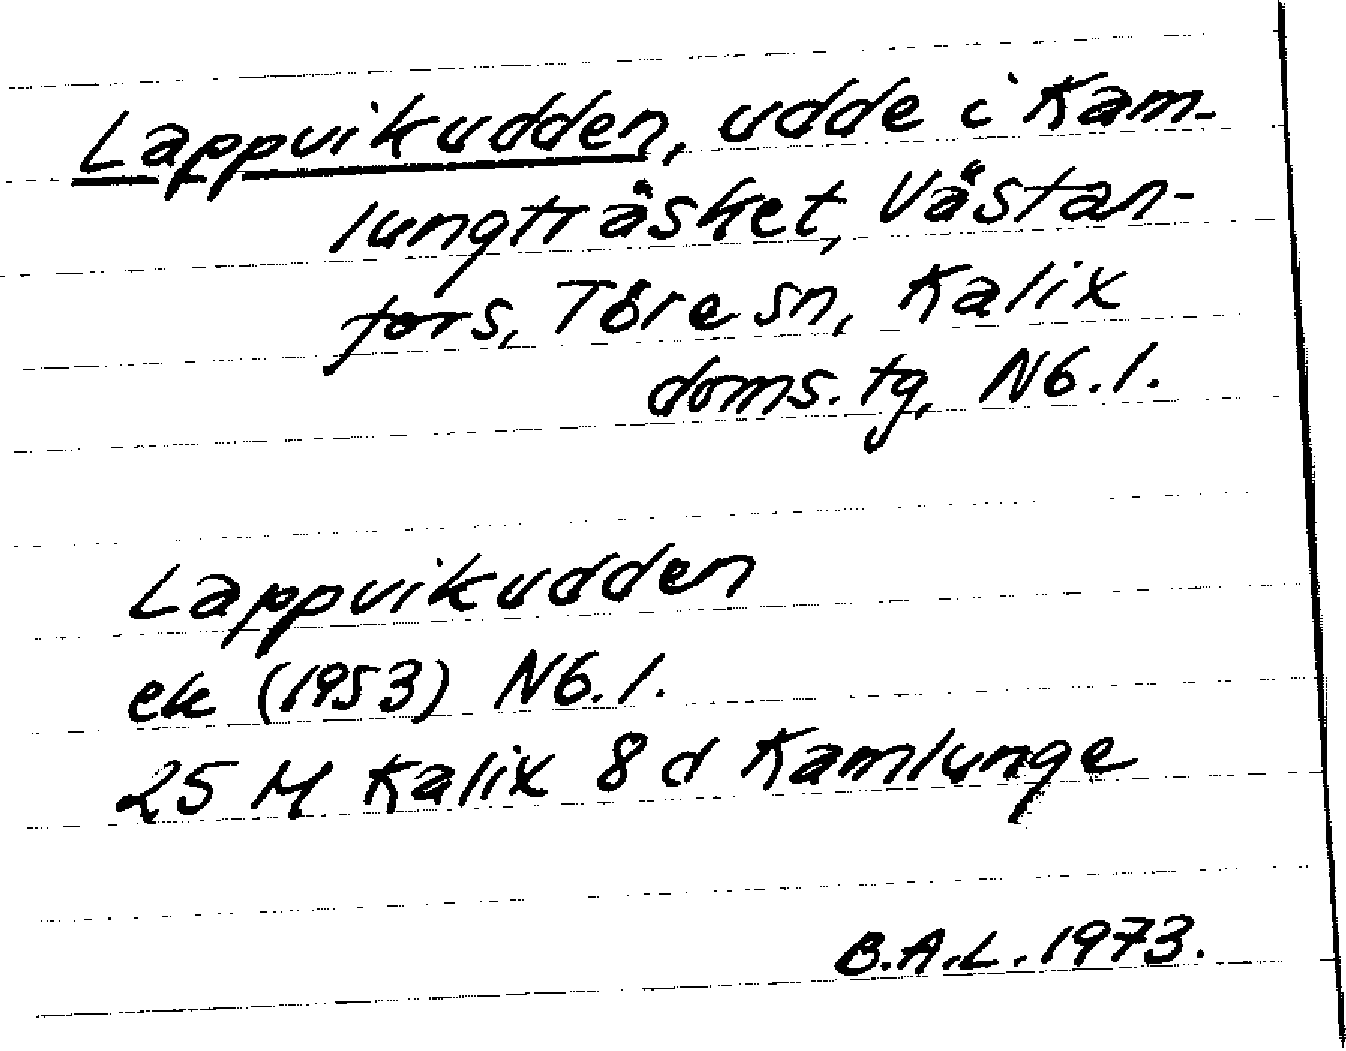 Lappvikudden, udde i Kam-
lungträsket, Västan-
fors, Töre sn, Kalix
doms. tg, N6.1.
Lappvikudden
ek (1953) N6.1.
25 M Kalix 8 d Kamlunge
B.A.L. 1973.